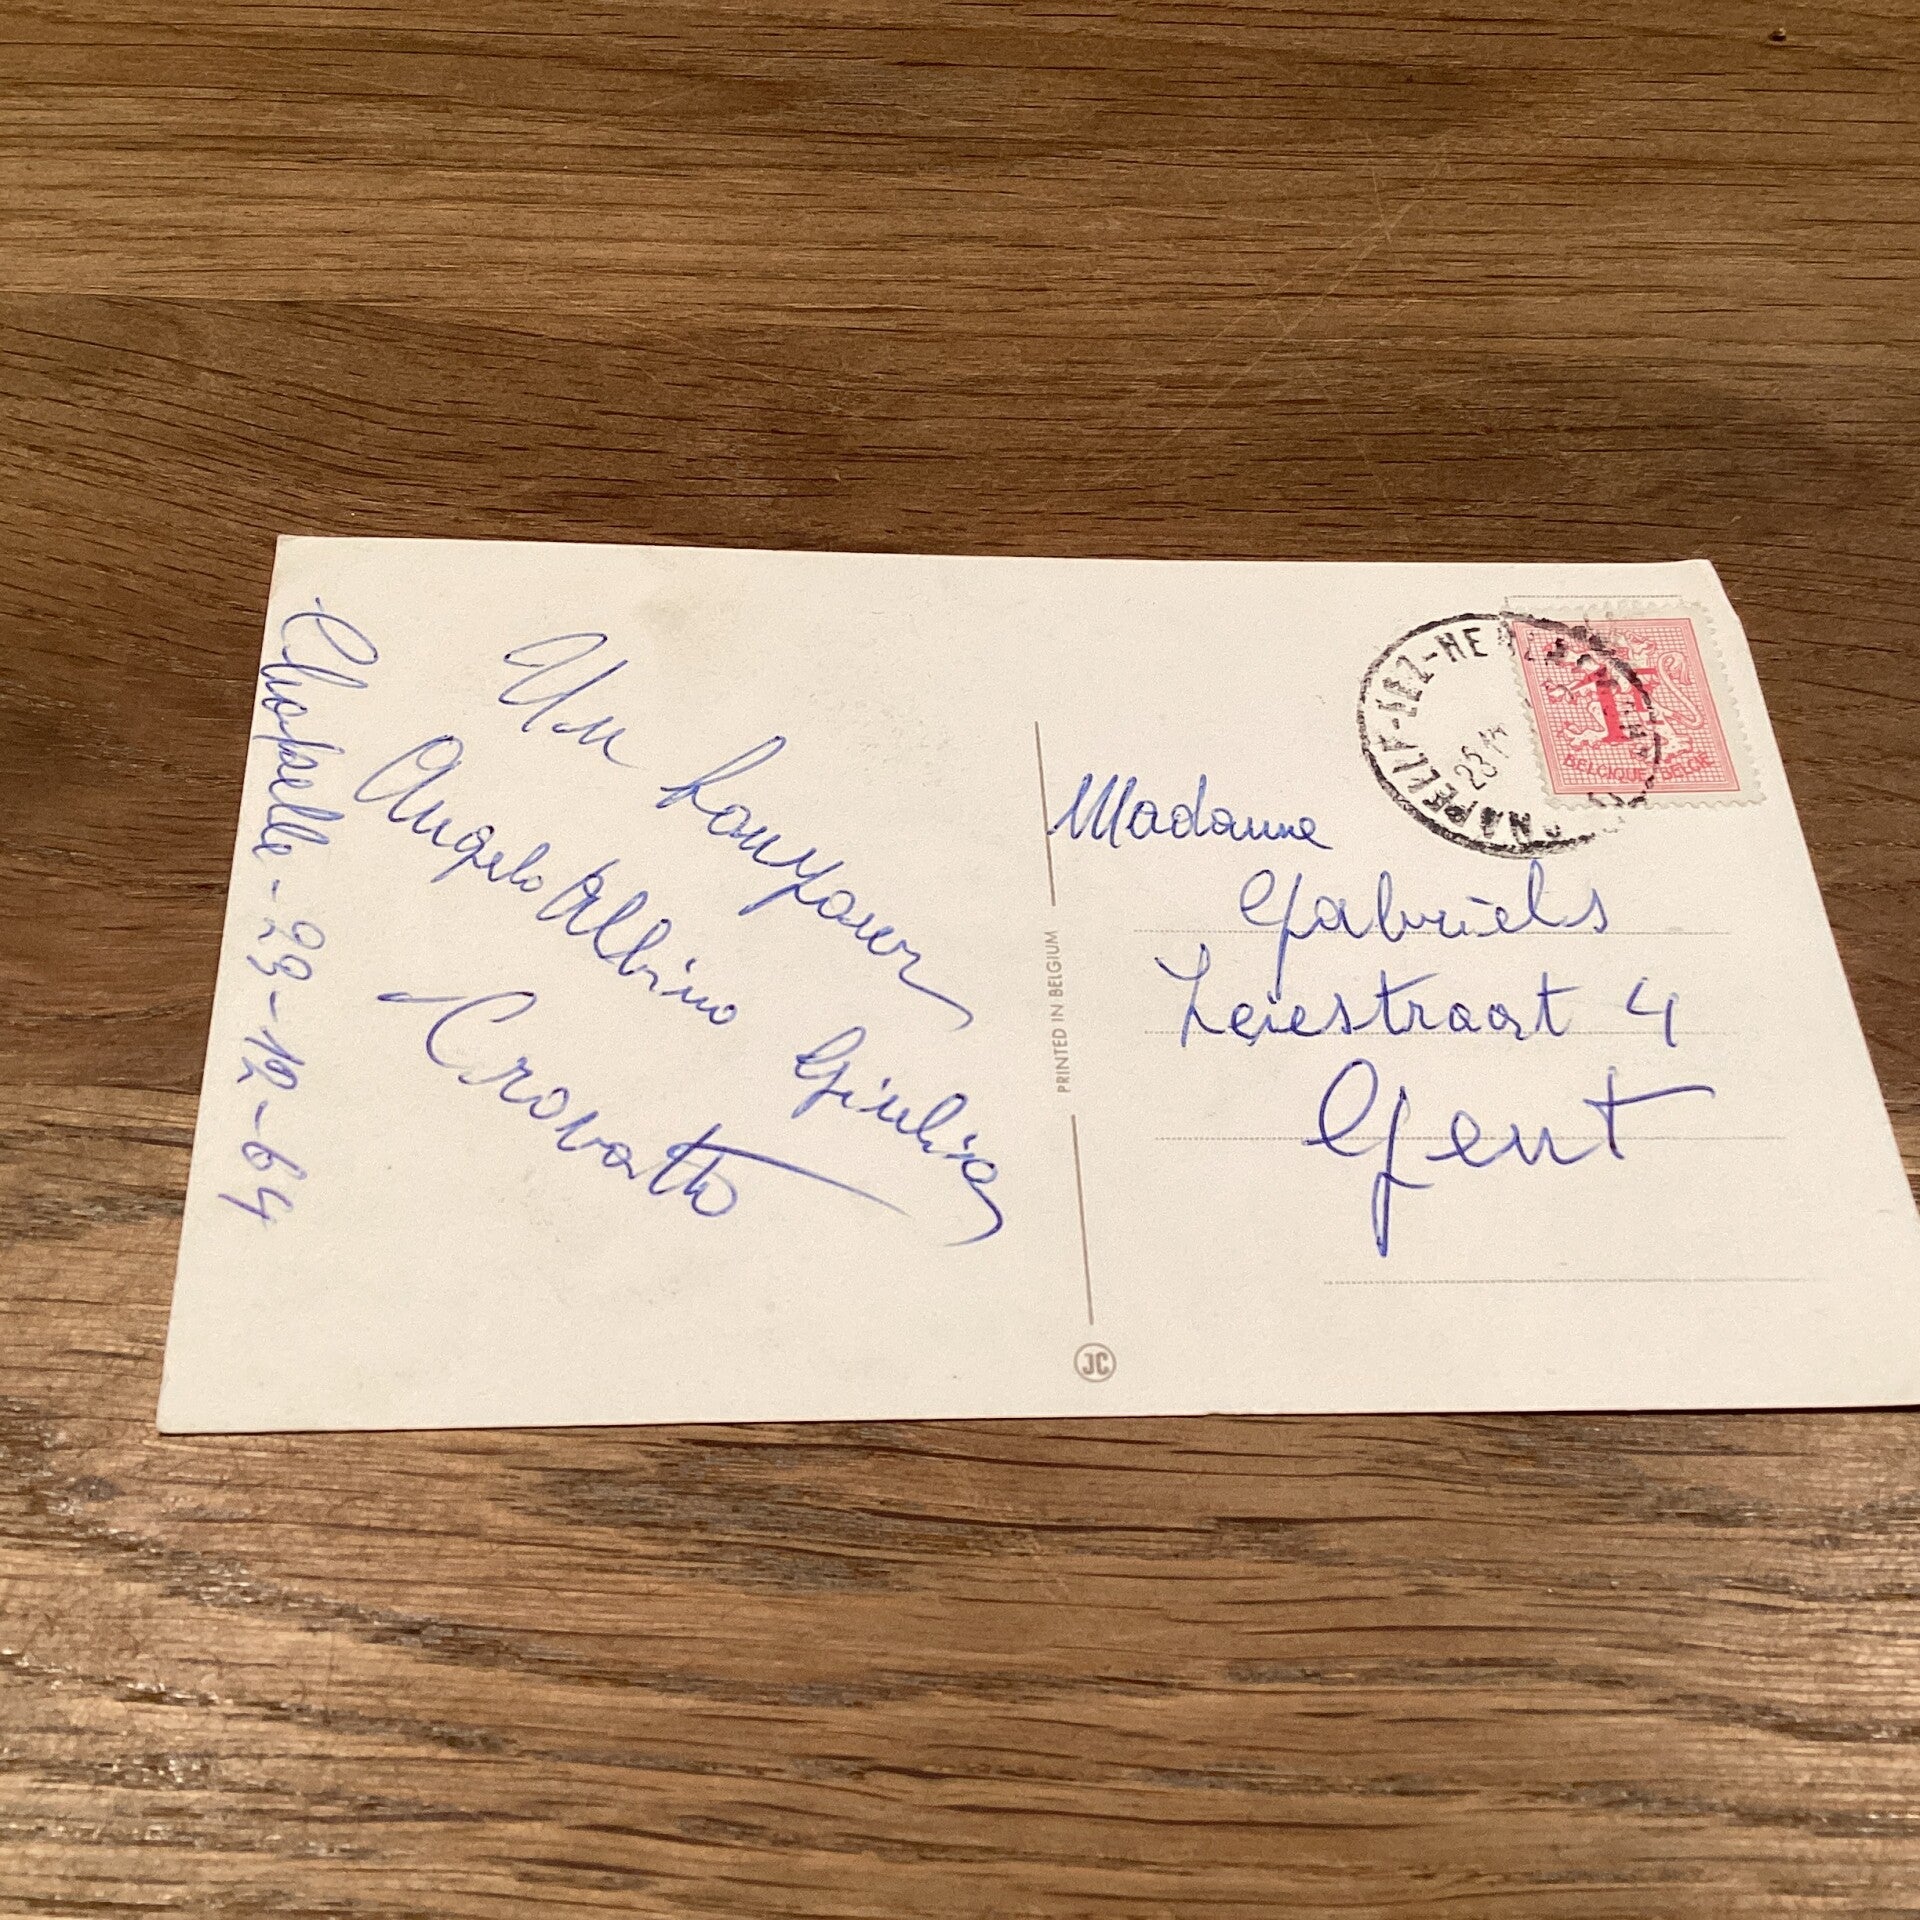 Chapelle - 23-12-64
Un bonjour
Angelo Albino Giulia
Cravatto
PRINTED IN BELGIUM
JC
CHAPELLE-LEZ-HERLAIMONT
23
1F
BELGIQUE-BELGIE
Madame
Gabriels
Leiestraat 4
Gent